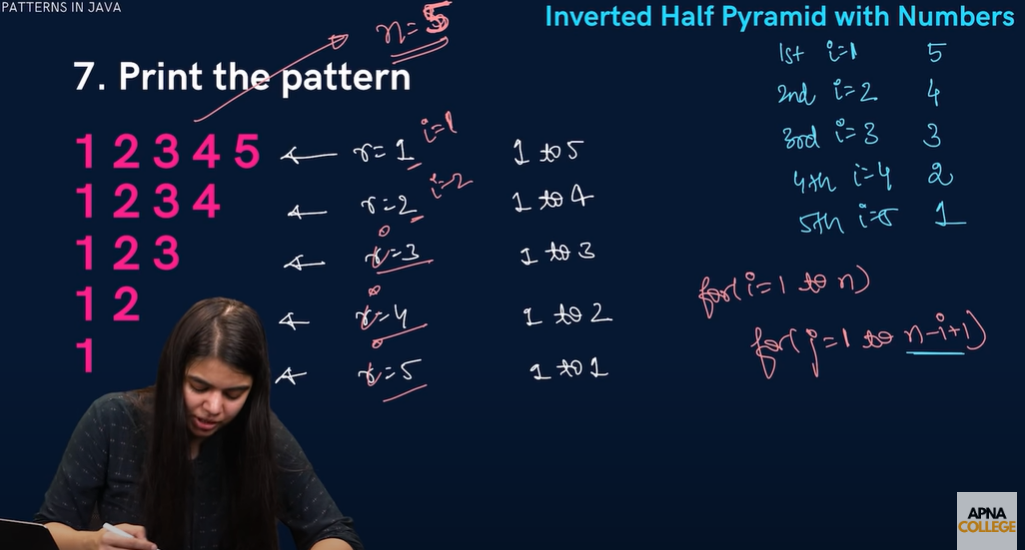 PATTERNS IN JAVA
Inverted Half Pyramid with Numbers
n=5
7. Print the pattern
1 2 3 4 5 r=1 i=1 1 to 5
1 2 3 4 r=2 i=2 1 to 4
1 2 3 r=3 1 to 3
1 2 r=4 1 to 2
1 r=5 1 to 1
1st i=1 5
2nd i=2 4
3rd i=3 3
4th i=4 2
5th i=5 1
for(i=1 to n)
for(j=1 to n-i+1)
APNA
COLLEGE